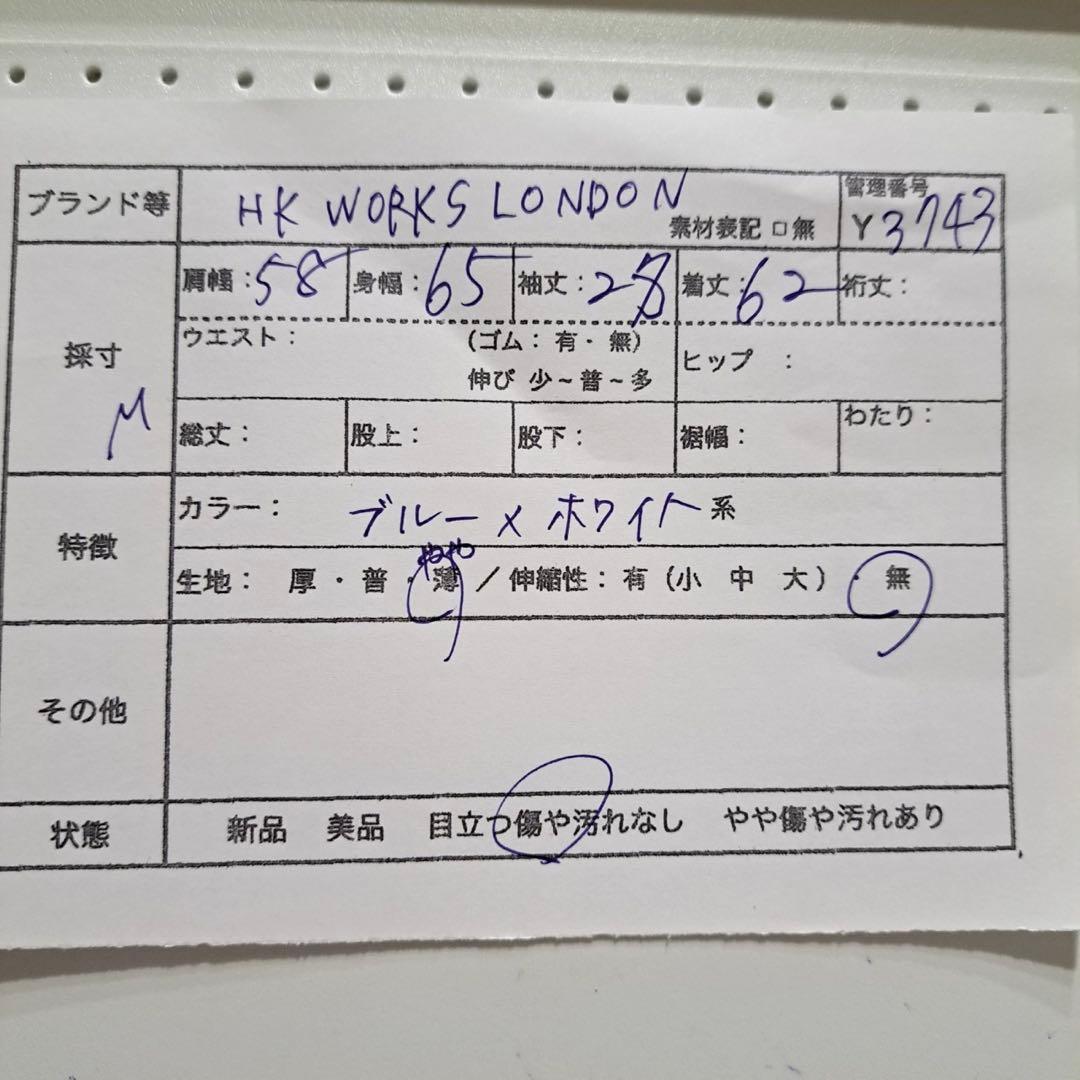 ブランド等 HK WORKS LONDON 素材表記 □ 無 管理番号 Y3743
採寸 M
肩幅：58 身幅：65 袖丈：28 着丈：62 裄丈：
ウエスト： (ゴム：有・無) 伸び 少～普～多 ヒップ ：
総丈： 股上： 股下： 裾幅： わたり：
特徴
カラー： ブルー×ホワイト系
生地： 厚・普・やや薄 ／ 伸縮性：有（小 中 大）・無
その他
状態 新品 美品 目立つ傷や汚れなし やや傷や汚れあり